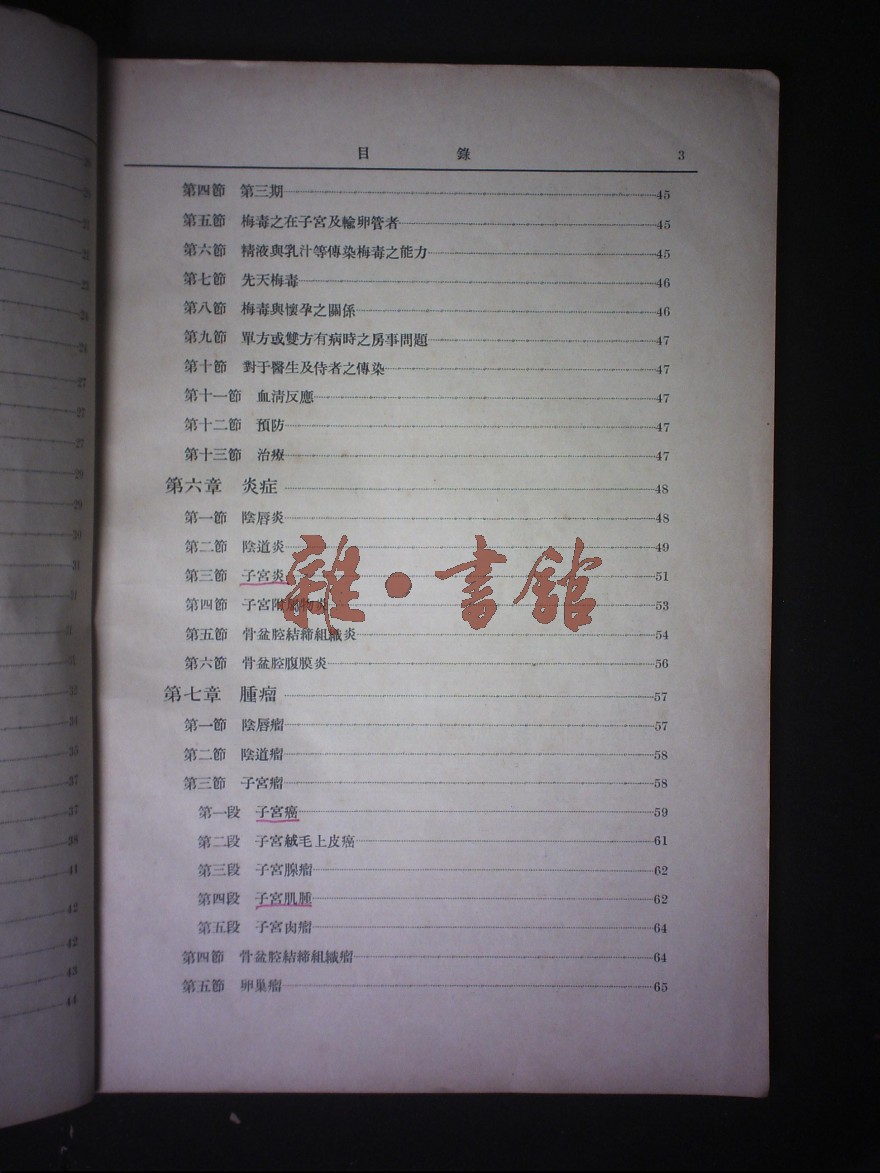 目 錄 3
第四節 第三期 45
第五節 梅毒之在子宮及輸卵管者 45
第六節 精液與乳汁等傳染梅毒之能力 45
第七節 先天梅毒 46
第八節 梅毒與懷孕之關係 46
第九節 單方或雙方有病時之房事問題 47
第十節 對于醫生及侍者之傳染 47
第十一節 血清反應 47
第十二節 預防 47
第十三節 治療 47
第六章 炎症 48
第一節 陰唇炎 48
第二節 陰道炎 49
第三節 子宮炎 51
雜·書館
第四節 子宮附屬物炎 53
第五節 骨盆腔結締組織炎 54
第六節 骨盆腔腹膜炎 56
第七章 腫瘤 57
第一節 陰唇瘤 57
第二節 陰道瘤 58
第三節 子宮瘤 58
第一段 子宮癌 59
第二段 子宮絨毛上皮癌 61
第三段 子宮腺瘤 62
第四段 子宮肌腫 62
第五段 子宮肉瘤 64
第四節 骨盆腔結締組織瘤 64
第五節 卵巢瘤 65